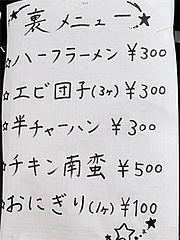 裏メニュー
☆ハーフラーメン ¥300
☆エビ団子(3ヶ) ¥300
☆半チャーハン ¥300
☆チキン南蛮 ¥500
☆おにぎり(1ヶ) ¥100